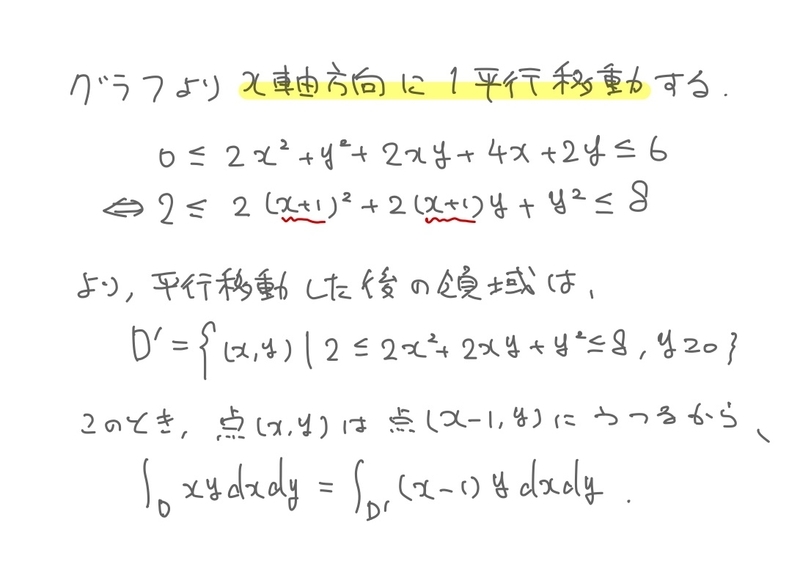 グラフより x軸方向に 1 平行移動する.
0 ≤ 2x² + y² + 2xy + 4x + 2y ≤ 6
⇔ 2 ≤ 2(x+1)² + 2(x+1)y + y² ≤ 8
より, 平行移動した後の領域は、
D′ = {(x,y) | 2 ≤ 2x² + 2xy + y² ≤ 8, y ≥ 0}
このとき, 点(x,y)は点(x-1,y)にうつるから、
∫_D xy dxdy = ∫_D′ (x-1) y dxdy .